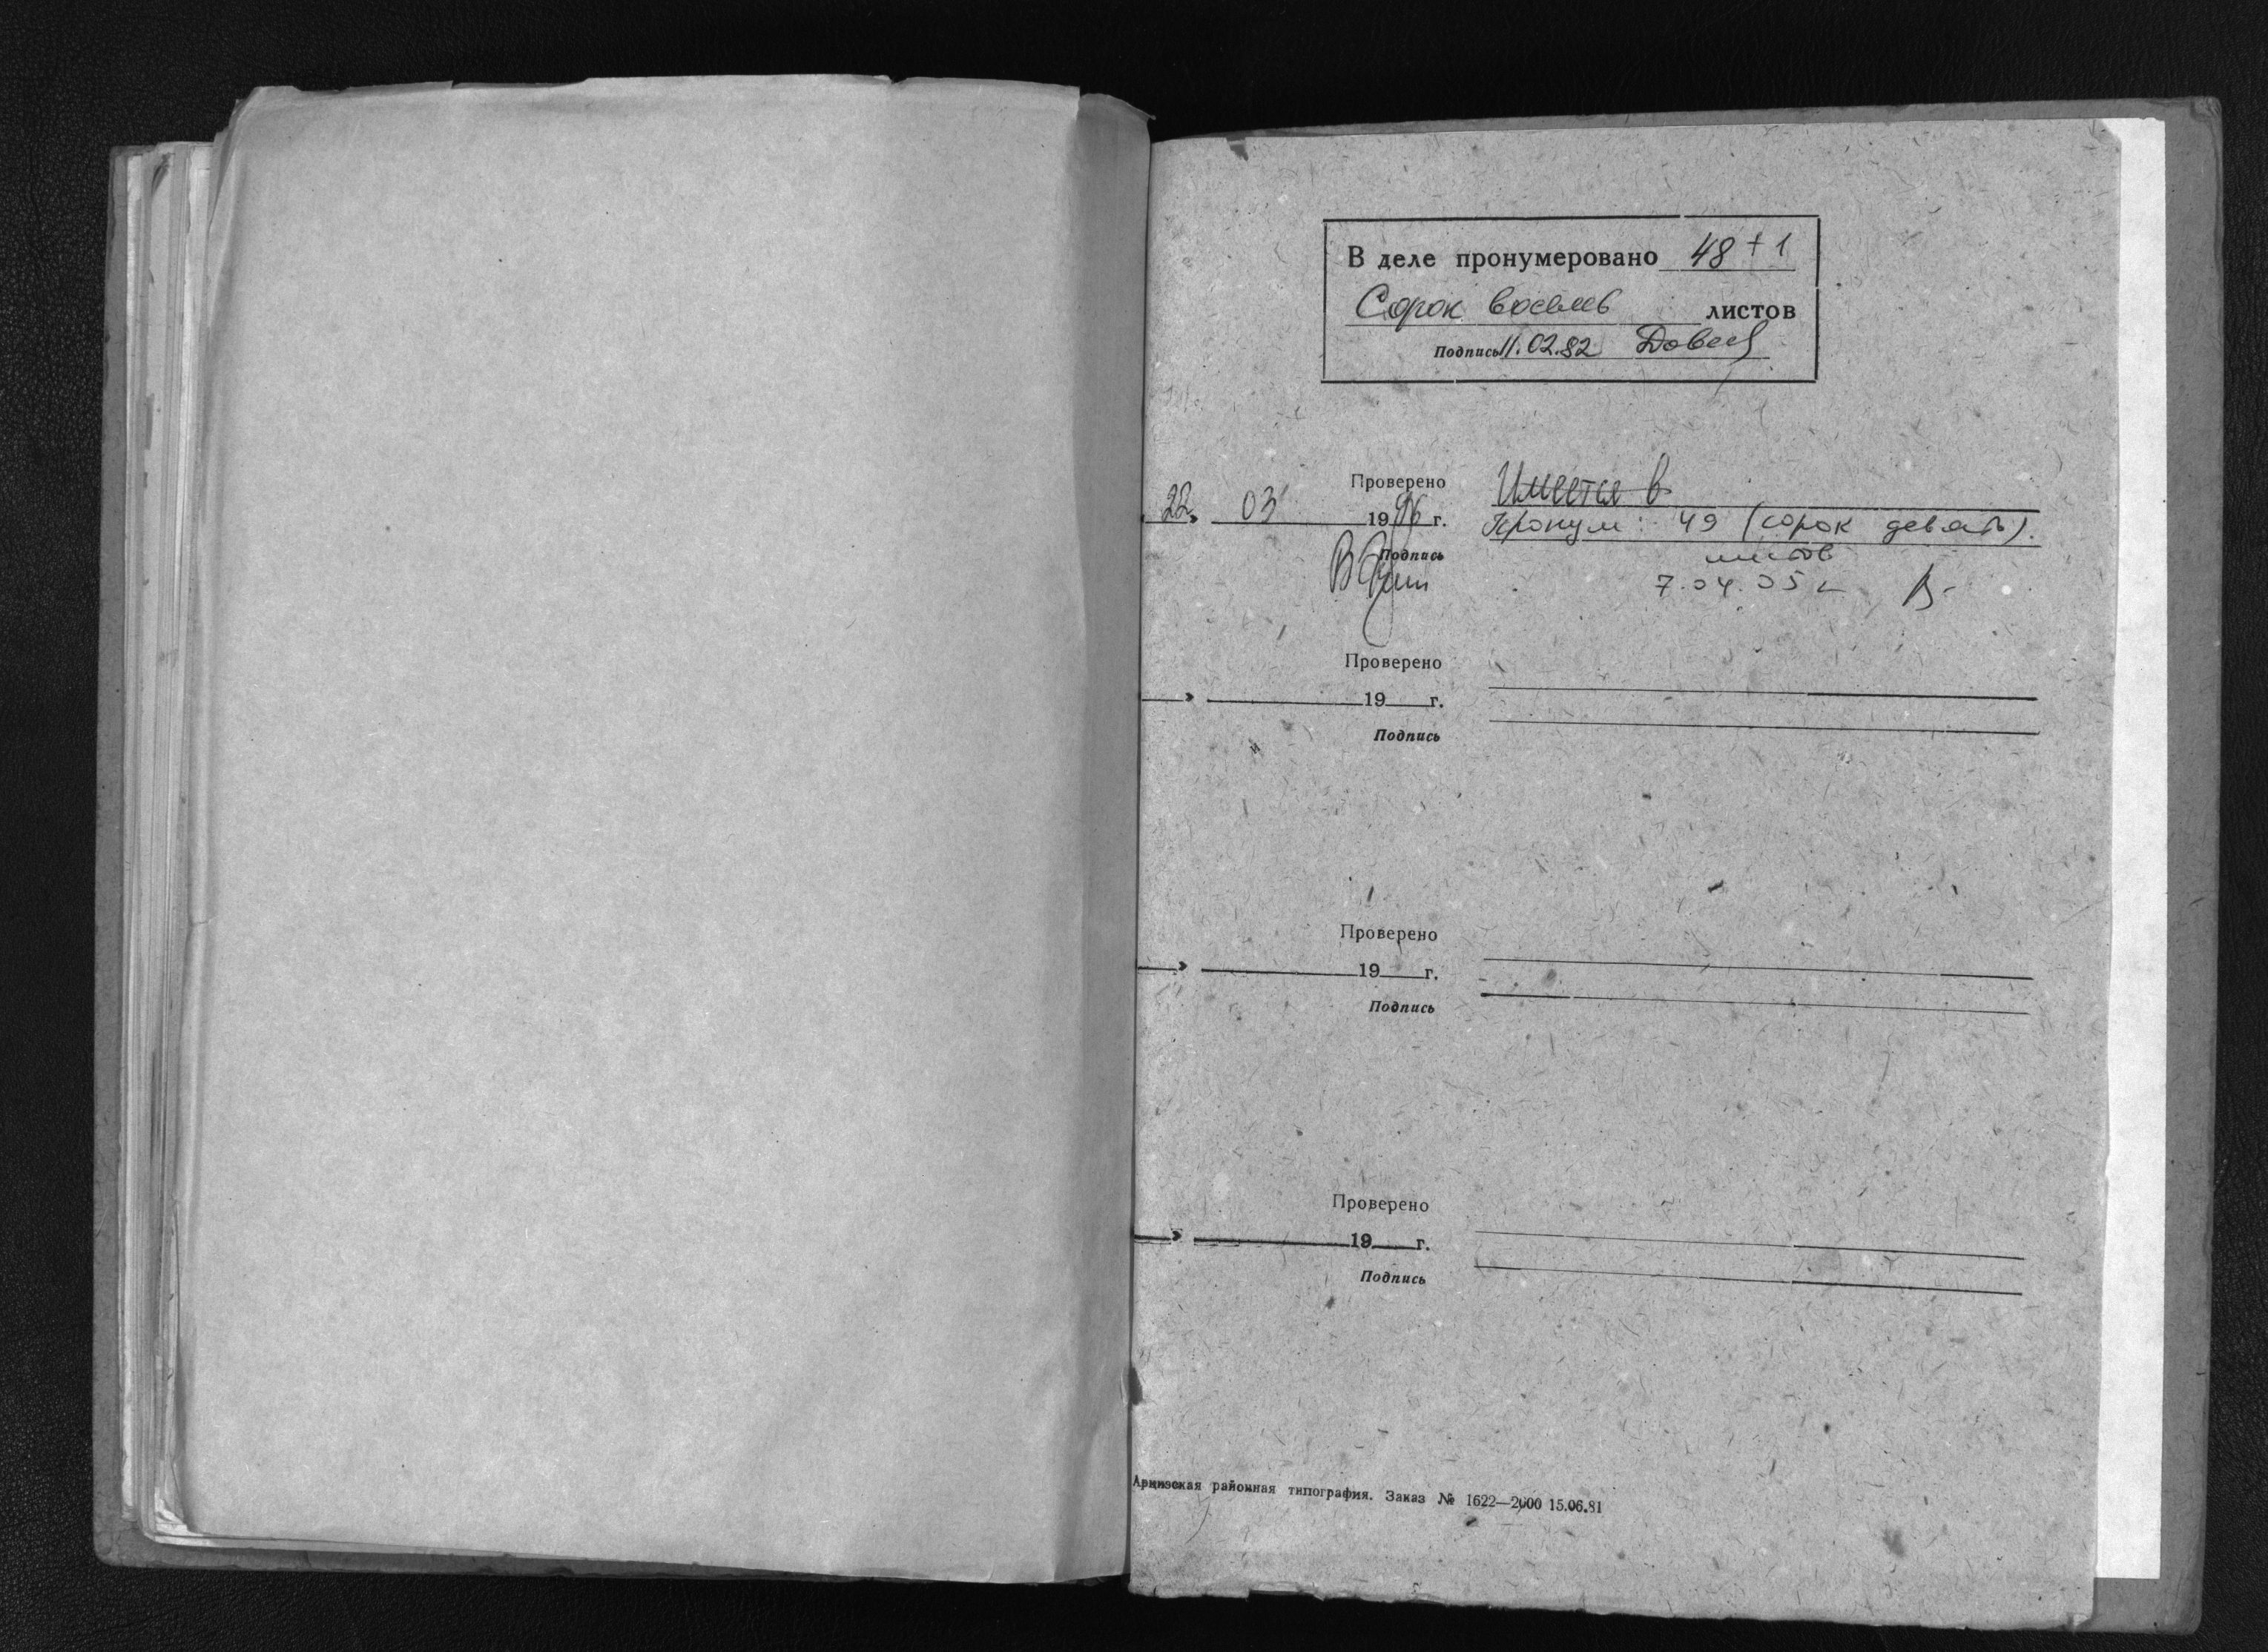 В деле пронумеровано 48 + 1
Сорок восемь листов
Подпись 11.02.82
Проверено
22 » 03 1996 г.
Подпись
Имеется в
Пронум: 49 (сорок девять).
листов
7.04.05 г
Проверено
» 19 г.
Подпись
Проверено
» 19 г.
Подпись
Проверено
» 19 г.
Подпись
Арцизская районная типография. Заказ № 1622—2000 15.06.81